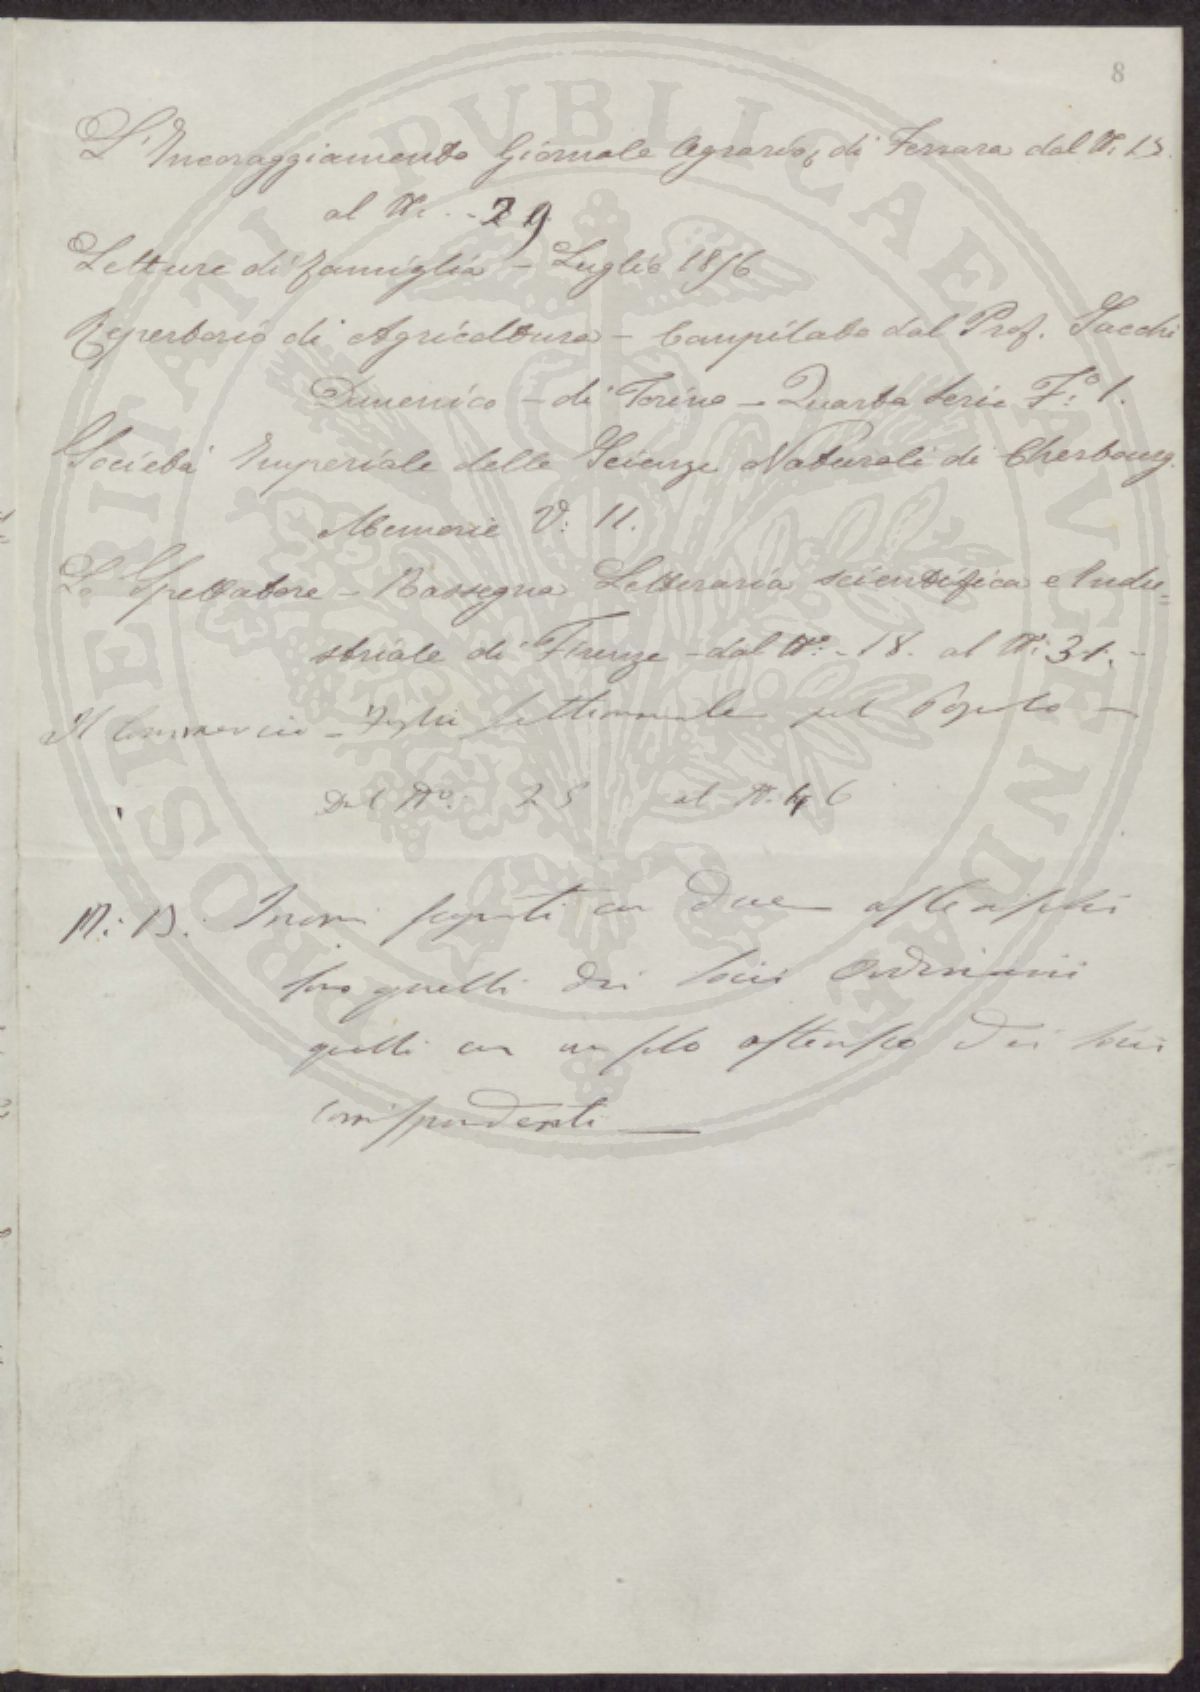 8
L'Incoraggiamento Giornale Agrario, di Ferrara dal N: 13.
al N: - 29
Letture di famiglia - Luglio 1856
Repertorio di Agricoltura - Compilato dal Prof. Sacchi
Domenico - di Torino - Quarta Serie F:° 1.
Società Imperiale delle Scienze Naturali di Cherbourg.
Memorie V: 11.
Lo Spettatore - Rassegna Letteraria scientifica e Indu=
striale di Firenze - dal N:° - 18. al N: 31. -
Il Commercio - Foglio settimanale del Popolo -
Dal N:° 25 al N: 46
N: B. I nomi segnati con due asterischi
sono quelli dei Soci Ordinarii
quelli con un solo asterisco dei soci
corrispondenti
PROSPERITATI PUBLICAE AUGENDAE